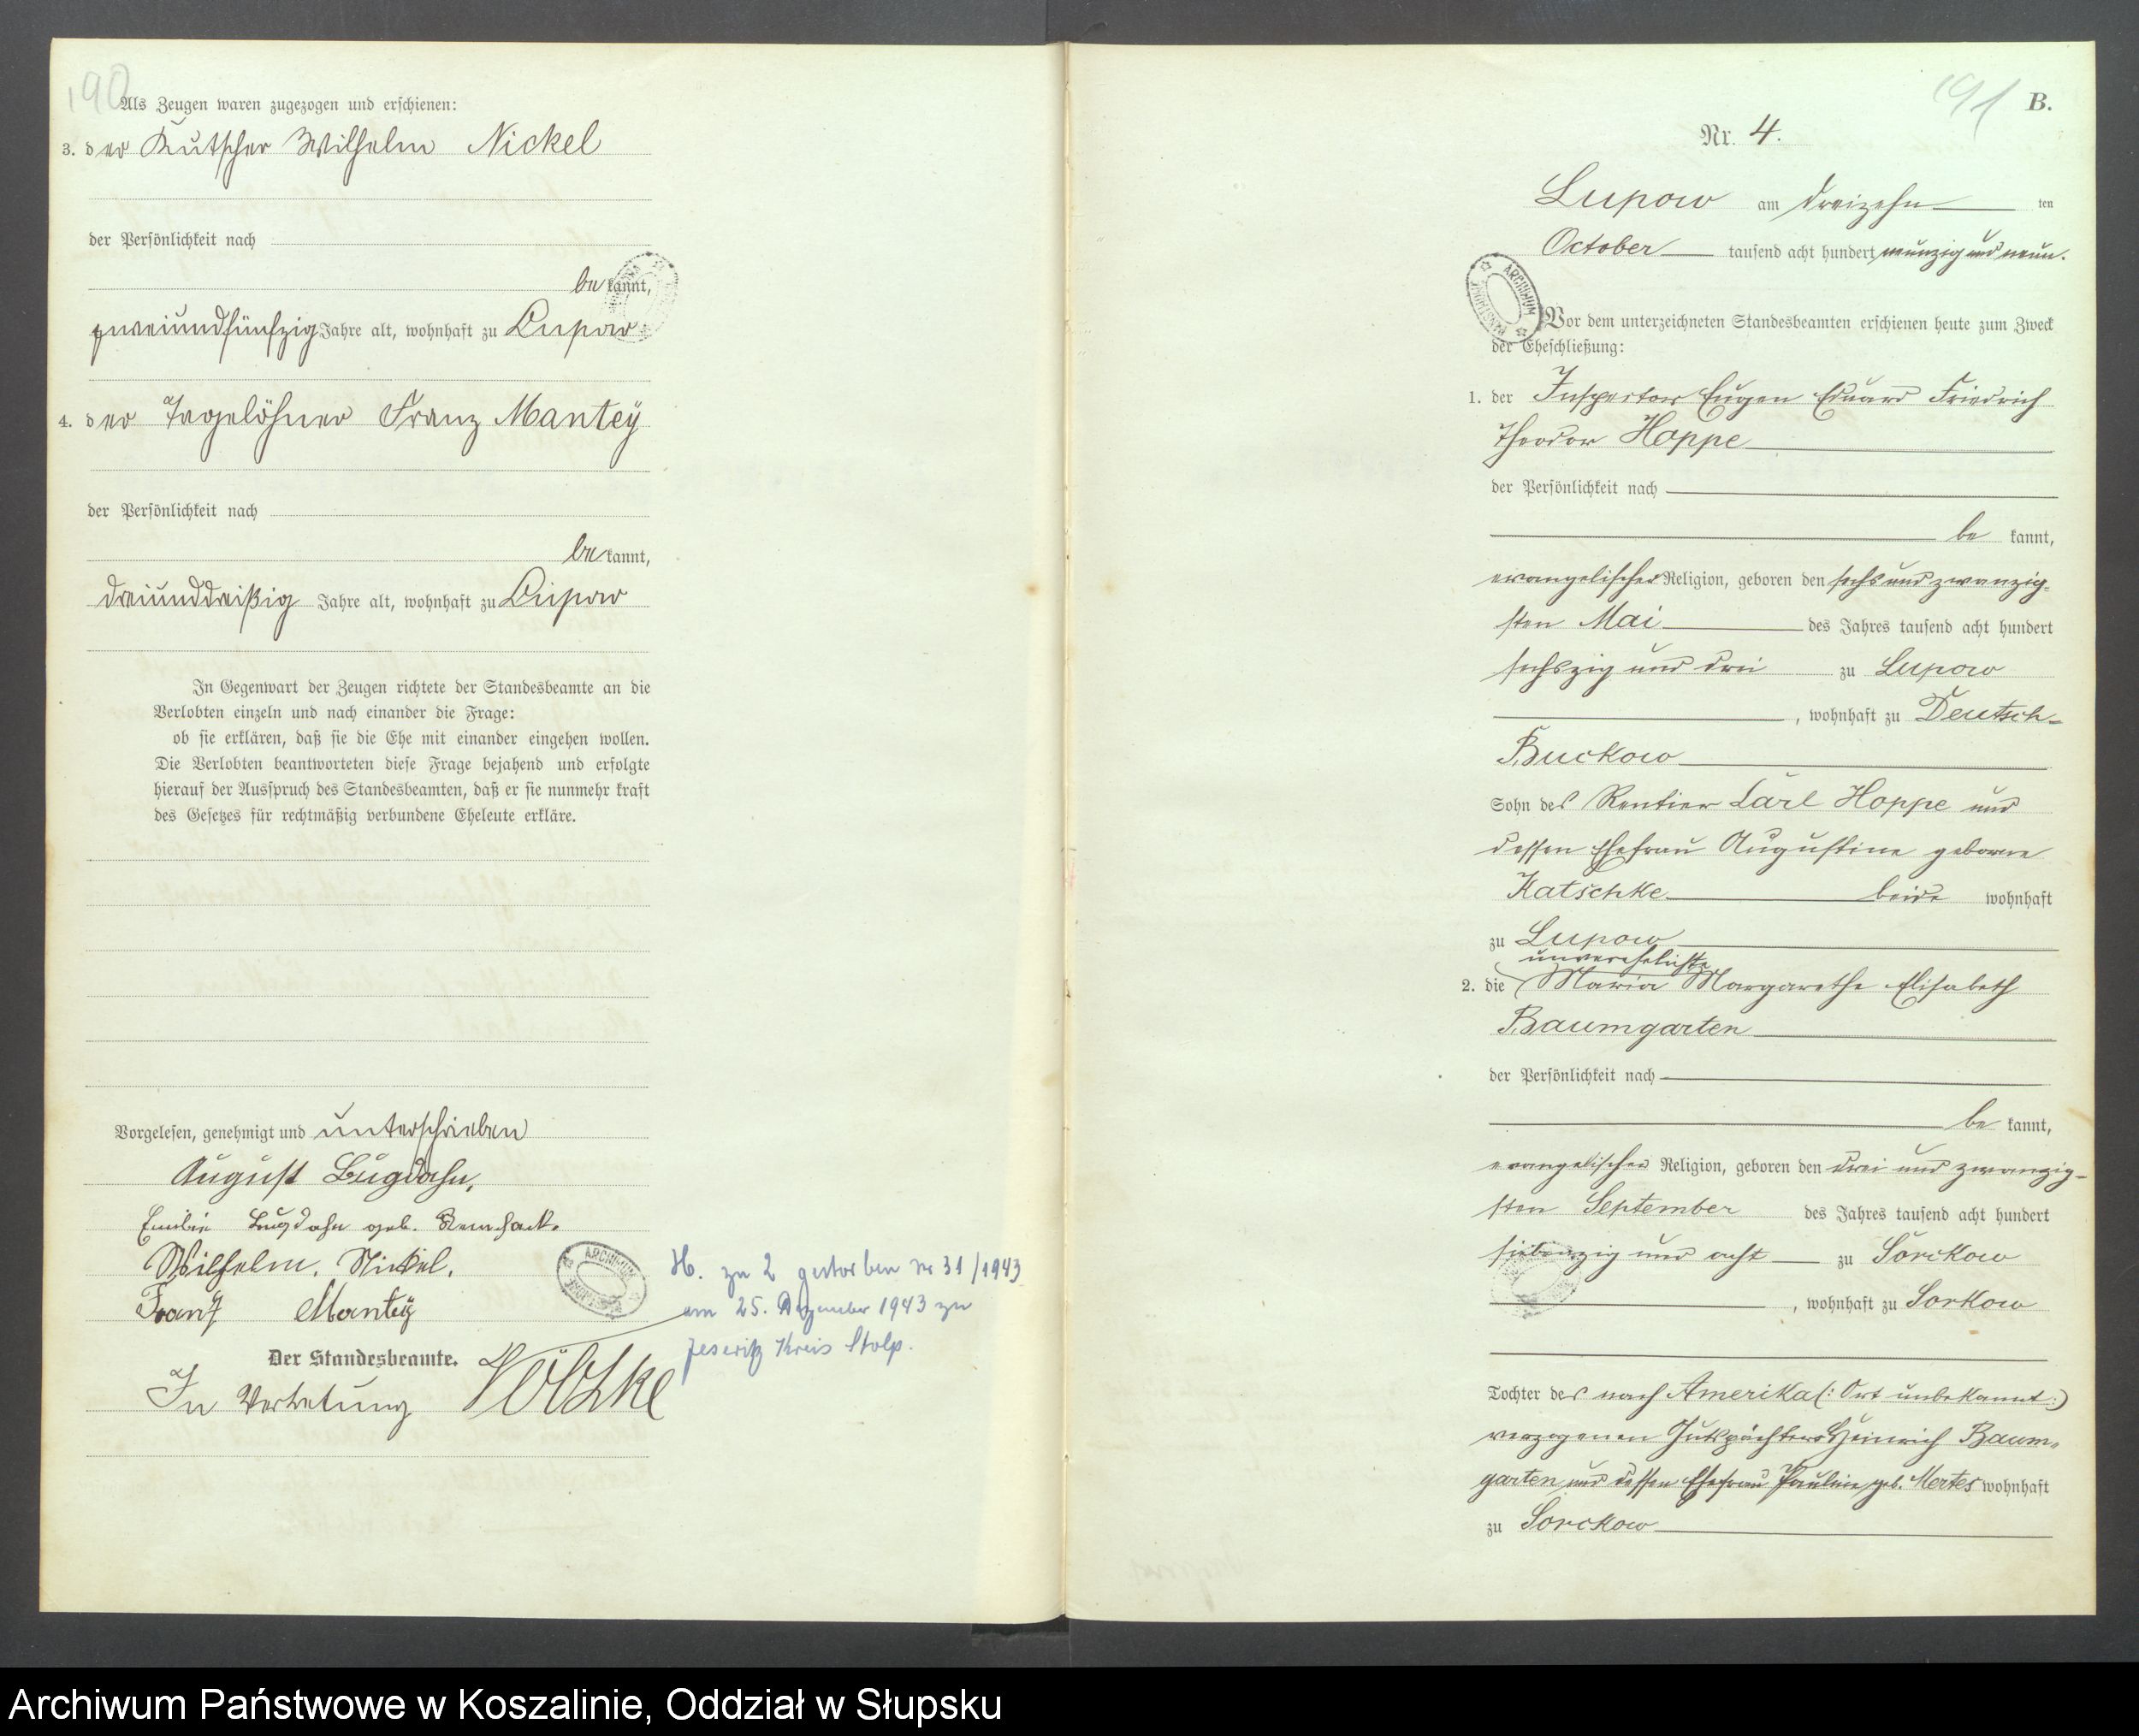 190
Als Zeugen waren zugezogen und erschienen:
3. der Kutscher Wilhelm Nickel
der Persönlichkeit nach
be kannt,
zweiundfünfzig Jahre alt, wohnhaft zu Lupow
4. der Tagelöhner Franz Mantey
der Persönlichkeit nach
be kannt,
dreiunddreißig Jahre alt, wohnhaft zu Lupow
In Gegenwart der Zeugen richtete der Standesbeamte an die
Verlobten einzeln und nach einander die Frage:
ob sie erklären, daß sie die Ehe mit einander eingehen wollen.
Die Verlobten beantworteten diese Frage bejahend und erfolgte
hierauf der Ausspruch des Standesbeamten, daß er sie nunmehr kraft
des Gesetzes für rechtmäßig verbundene Eheleute erkläre.
Vorgelesen, genehmigt und unterschrieben
August Bugdahn.
Emilie Bugdahn geb.
Wilhelm. Nickel.
Franz Mantey
Der Standesbeamte.
In Vertretung
H. zu 2 gestorben nr 31/1943
am 25. Dezember 1943 zu
Jeseritz Kreis Stolp.
191
B.
Nr. 4.
Lupow am dreizehn ten
October tausend acht hundert neunzig und neun.
Vor dem unterzeichneten Standesbeamten erschienen heute zum Zweck
der Eheschließung:
1. der Inspector Eugen Eduard Friedrich
Theodor Hoppe
der Persönlichkeit nach
be kannt,
evangelischer Religion, geboren den sechs und zwanzig-
sten Mai des Jahres tausend acht hundert
sechszig und drei zu Lupow
, wohnhaft zu Deutsch-
Buckow
Sohn des Rentier Carl Hoppe und
dessen Ehefrau Augustine geborne
Katschke beide wohnhaft
zu Lupow
unverehelichte
2. die Maria Margarethe Elisabeth
Baumgarten
der Persönlichkeit nach
be kannt,
evangelischer Religion, geboren den drei und zwanzig-
sten September des Jahres tausend acht hundert
siebenzig und acht zu Sorckow
, wohnhaft zu Sorkow
Tochter des nach Amerika (: Ort unbekannt :)
verzogenen Gutspächters Heinrich Baum-
garten und dessen Ehefrau Pauline geb. Mertes wohnhaft
zu Sorckow
Archiwum Państwowe w Koszalinie, Oddział w Słupsku